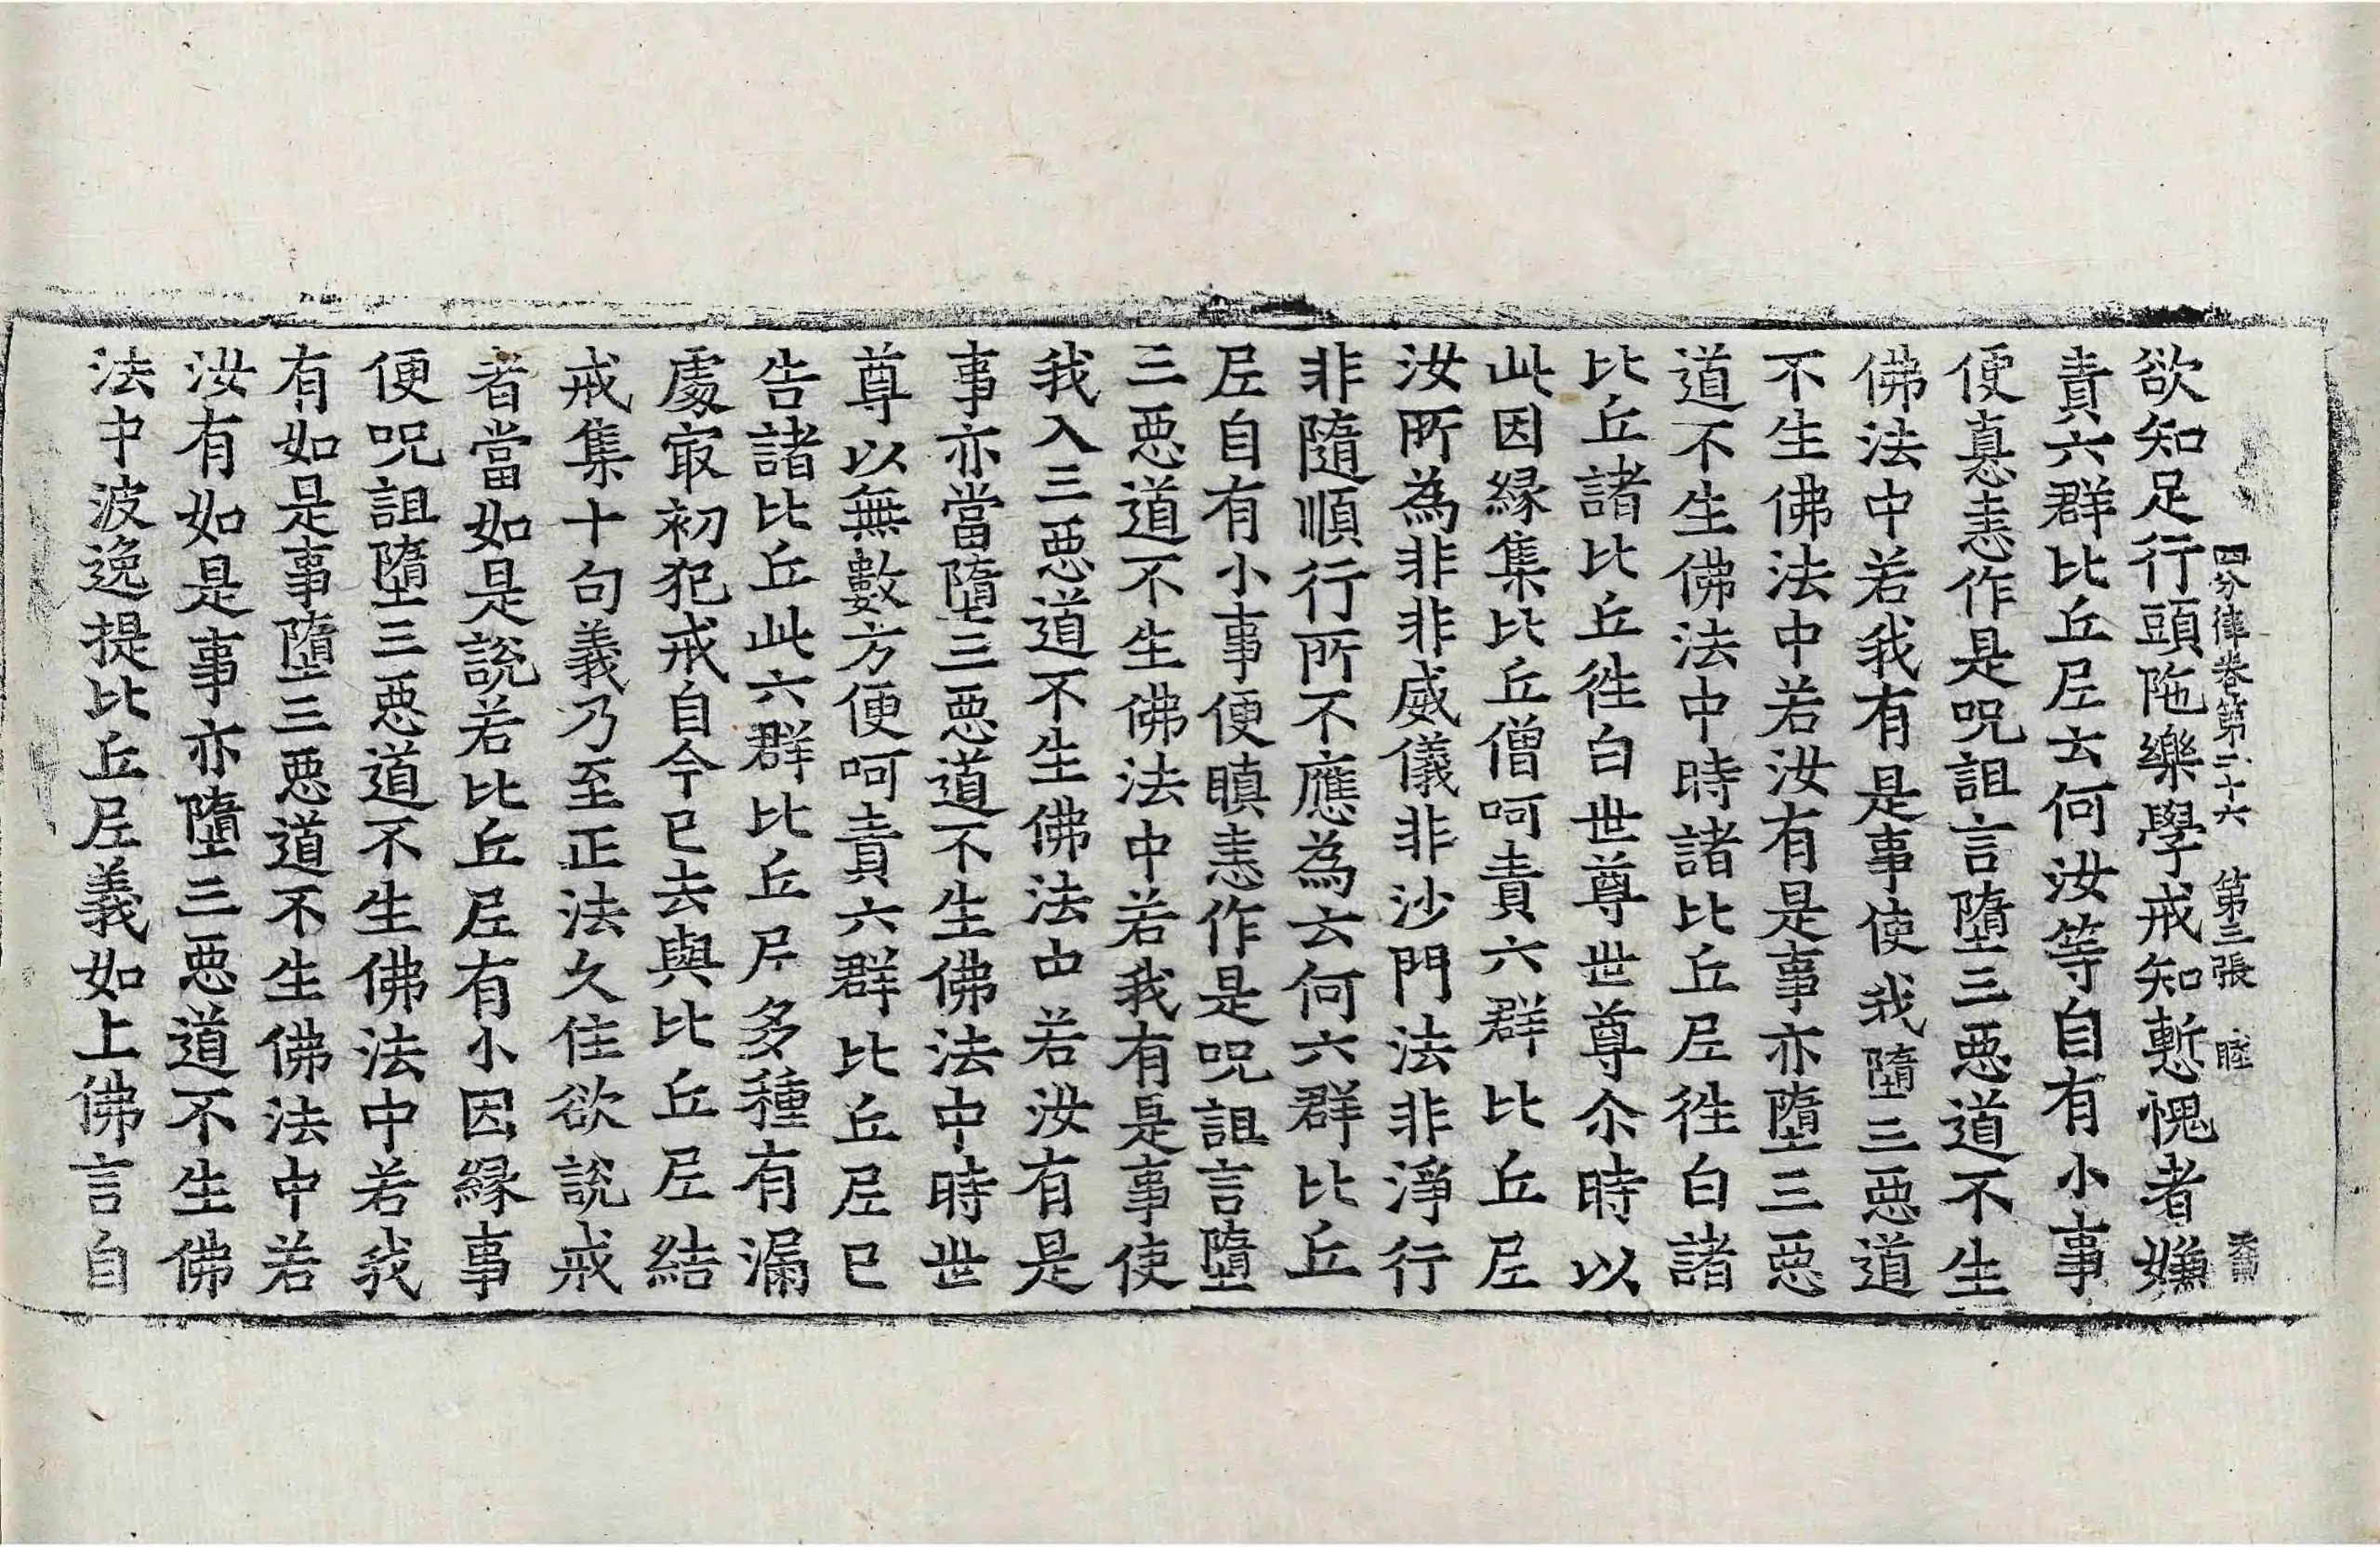 四分律卷第二十六 第三張 睦
欲知足行頭陁樂學戒知慙愧者嫌
責六群比丘尼云何汝等自有小事
便嗔恚作是呪詛言墮三惡道不生
佛法中若我有是事使我墮三惡道
不生佛法中若汝有是事亦墮三惡
道不生佛法中時諸比丘尼徃白諸
比丘諸比丘徃白世尊世尊尒時以
此因緣集比丘僧呵責六群比丘尼
汝所為非非威儀非沙門法非淨行
非隨順行所不應為云何六群比丘
尼自有小事便瞋恚作是呪詛言墮
三惡道不生佛法中若我有是事使
我入三惡道不生佛法中若汝有是
事亦當墮三惡道不生佛法中時世
尊以無數方便呵責六群比丘尼已
告諸比丘此六群比丘尼多種有漏
處㝡初犯戒自今已去與比丘尼結
戒集十句義乃至正法久住欲說戒
者當如是說若比丘尼有小因緣事
便呪詛墮三惡道不生佛法中若我
有如是事墮三惡道不生佛法中若
汝有如是事亦墮三惡道不生佛
法中波逸提比丘尼義如上佛言自